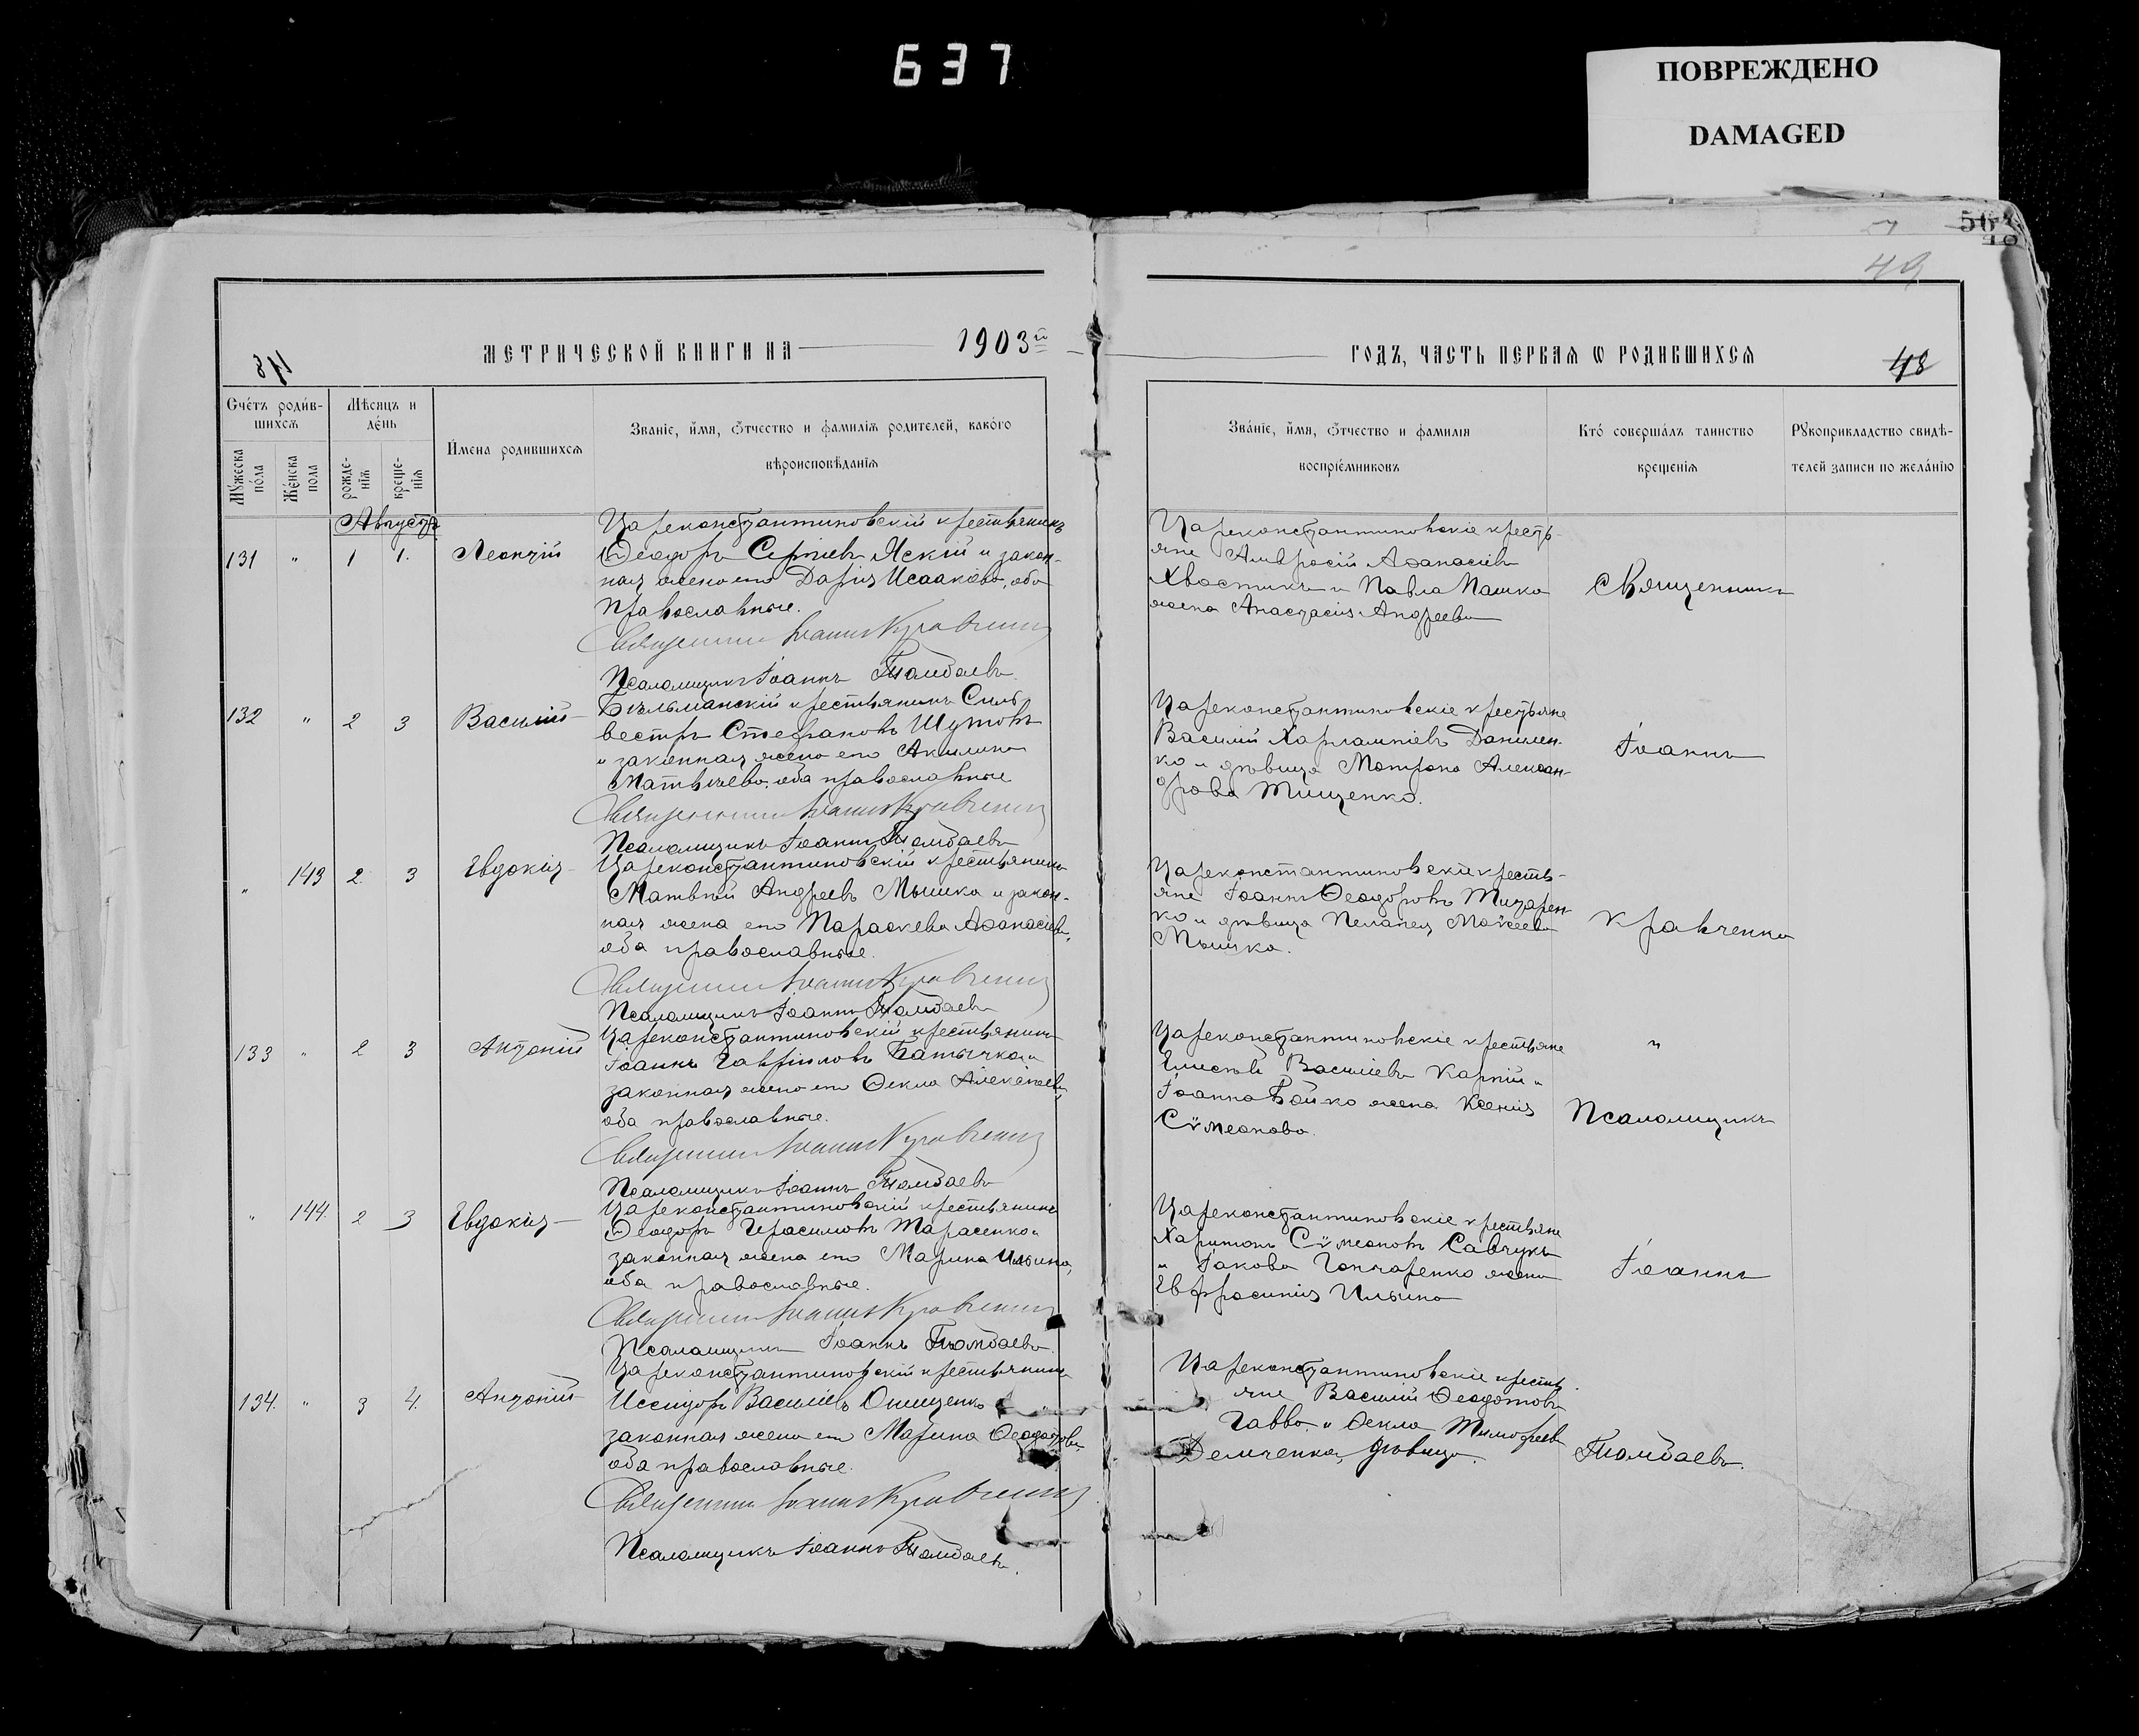 637
ПОВРЕЖДЕНО
DAMAGED
49
48
МЕТРИЧЕСКОЙ КНИГИ НА 1903й
ГОДЪ, ЧАСТЬ ПЕРВАЯ Ѡ РОДИВШИХСЯ
48
Счётъ родив-
шихся
Мѣсяцъ и
день
Имена родившихся
Званіе, имя, ѿчество и фамилія родителей, какого
вѣроисповѣданія
Мужеска пола
Женска пола
рожде-
нія
креще-
нія
Званіе, имя, ѿчество и фамилія
воспріемниковъ
Кто совершалъ таинство
крещенія
Рукоприкладство свидѣ-
телей записи по желанію
Августа
131 " 1 1. Леонтій
Цареконстантиновскій крестьянинъ
Ѳеодоръ Сергіевъ Яскій и закон-
ная жена его Дарія Исаакова, оба
православные.
Священникъ Іоаннъ Кравченко
Псаломщикъ Іоаннъ
Цареконстантиновскіе кресть-
яне Амвросій Аѳанасіевъ
Хвостикъ и Павла Пашко
жена Анастасія Андреева
Священникъ
132 " 2 3 Василій
Бѣльманскій крестьянинъ Силь
вестръ Стефановъ Шутовъ
и законная жена его Акилина
Матѳѣева, оба православные
Священникъ Іоаннъ Кравченко
Псаломщикъ Іоаннъ
Цареконстантиновскіе крестьяне
Василій Харлампіевъ Данилен-
ко и дѣвица Матрона Алексан-
дрова Тищенко.
Іоаннъ
" 143 2 3 Евдокія
Цареконстантиновскій крестьянинъ
Матвѣй Андреевъ Мышка и закон-
ная жена его Параскева Аѳанасіева,
оба православные.
Священникъ Іоаннъ Кравченко
Псаломщикъ Іоаннъ
Цареконстантиновскіе кресть-
яне Іоаннъ Ѳеодоровъ
ко и дѣвица Пелагея Моѵсеева
Мышка.
Кравченко
133 " 2 3 Антоній
Цареконстантиновскій крестьянинъ
Іоаннъ Гавріиловъ Батычко и
законная жена его Ѳекла Алексѣева,
оба православные.
Священникъ Іоаннъ Кравченко
Псаломщикъ Іоаннъ
Цареконстантиновскіе крестьяне
Елисей Василіевъ Карпій и
Іоанна Бойко жена Ксенія
Сѵмеонова.
и
Псаломщикъ
" 144. 2 3 Евдокія
Цареконстантиновскій крестьянинъ
Ѳеодоръ Герасимовъ Тарасенко и
законная жена его Марина Ильина,
оба православные.
Священникъ Іоаннъ Кравченко
Псаломщикъ Іоаннъ
Цареконстантиновскіе крестьяне
Харитонъ Сѵмеоновъ Савчукъ
и Іакова Гончаренко жена
Евфросинія Ильина
Іоаннъ
134. " 3 4. Антоній
Цареконстантиновскій крестьянинъ
Исидоръ Василіевъ Онищенко и
законная жена его Марина Ѳеодотова,
оба православные.
Священникъ Іоаннъ Кравченко
Псаломщикъ Іоаннъ
Цареконстантиновскіе кресть-
яне Василій Ѳеодотовъ
Гавва и Ѳекла Тимофеева
Демченко, дѣвица.